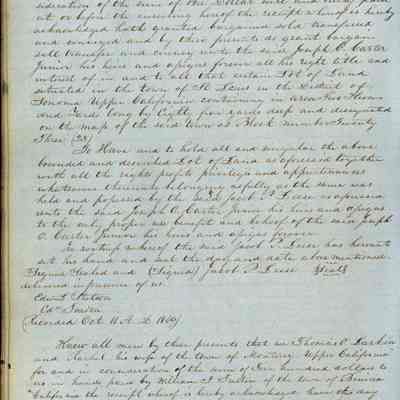 sideration of the sum of One Dollar to me in hand paid
at or before the ensealing hereof the receipt whereof is hereby
acknowledged hath granted bargained sold transferred
and conveyed and by these presents do grant bargain
sell transfer and convey unto the said Joseph O. Carter
Junior his heirs and assigns forever all his right title and
interest of in and to all that certain Lot of Land
situated in the town of St. Louis in the District of
Sonoma Upper California containing in area
and Yards long by Eighty five yards deep and designated
on the map of the said town as Block number Twenty
Three (23)
To Have and to hold all and singular the above
bounded and described Lot of Land as aforesaid together
with all the rights profits privileges and appurtenances
whatsoever thereunto belonging as fully as the same was
held and possessed by the said Jacob P. Leese as aforesaid
unto the said Joseph O. Carter Junior his heirs and assigns
to the only proper use benefit and behoof of the said Joseph
O. Carter Junior his heirs and assigns forever
In witness whereof the said Jacob P. Leese has hereunto
set his hand and seal the day and date above mentioned
Signed Sealed and (Signed) Jacob P. Leese (Seal)
delivered in presence of us
Edwd
Edw
Recorded Oct 11 A.D.
Know all men by these presents that we Thomas O. Larkin
and Rachel his wife of the town of Monterey Upper California
for and in consideration of the sum of Five hundred dollars to
us in hand paid by William of the town of Benicia
California the receipt whereof is hereby acknowledged have this day